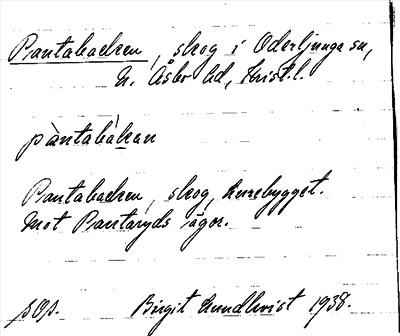 Pantabacken, skog i Oderljunga sn,
N. Åsbo hd, Krist.l.
pàntabàkan
Pantabacken, skog, hunebygget.
Mot Pantaryds ägor.
sOp. Birgit Lundkvist 1938.